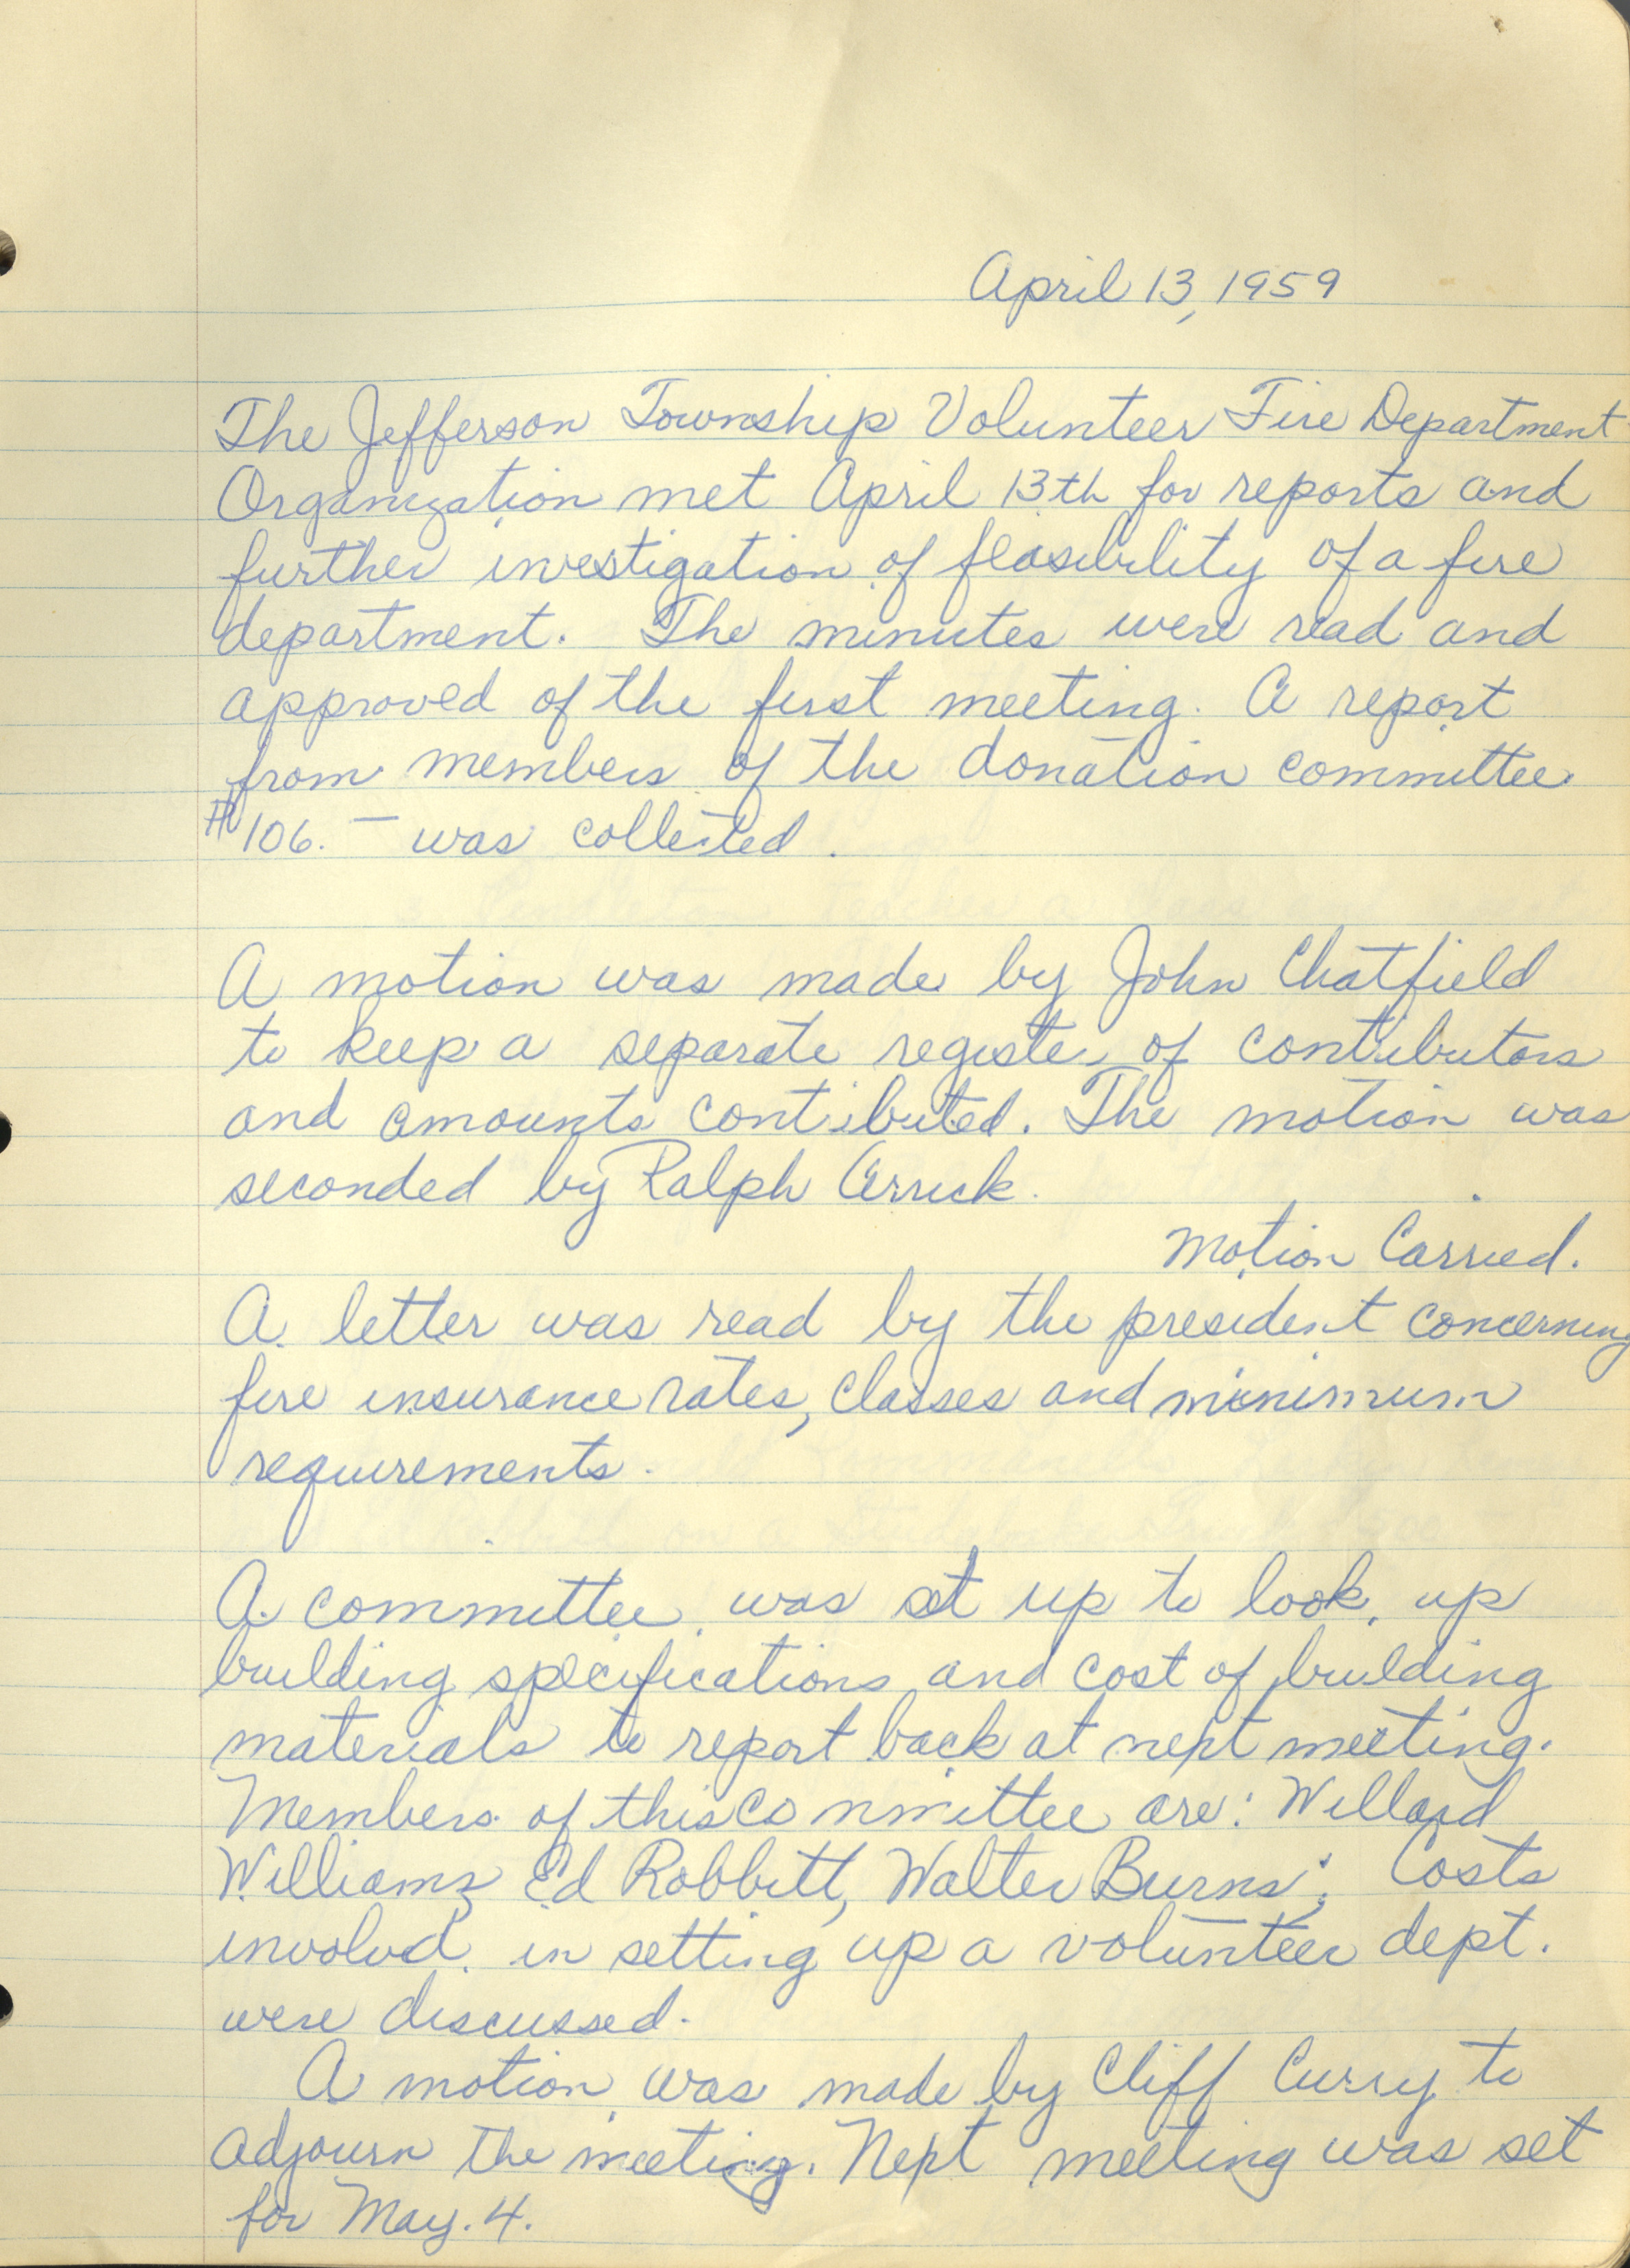 April 13, 1959
The Jefferson Township Volunteer Fire Department
Organization met April 13th for reports and
further investigation of feasibility of a fire
department. The minutes were read and
approved of the first meeting. A report
from members of the donation committee.
$106.– was collected.
A motion was made by John Chatfield
to keep a separate register of contributors
and amounts contributed. The motion was
seconded by Ralph Arrick.
Motion Carried.
A letter was read by the president concerning
fire insurance rates, classes and minimum
requirements.
A committee was set up to look up
building specifications and cost of building
materials to report back at next meeting.
Members of this committee are: Willard
Williams, Ed Robbitt, Walter Burns; Costs
involvd in setting up a volunteer dept.
were discussed.
A motion was made by Cliff Curry to
adjourn the meeting. Next meeting was set
for May. 4.